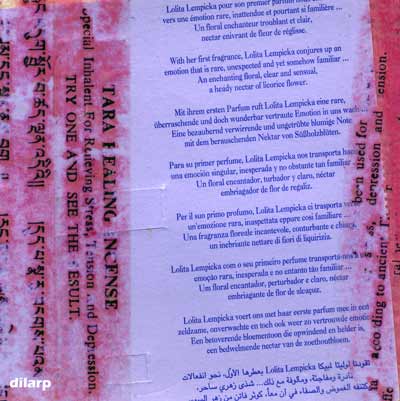 Lolita Lempicka pour son premier parfum
vers une émotion rare, inattendue et pourtant si familière ...
Un floral enchanteur troublant et clair,
nectar enivrant de fleur de réglisse.
With her first fragrance, Lolita Lempicka conjures up an
emotion that is rare, unexpected and yet somehow familiar ...
An enchanting floral, clear and sensual,
a heady nectar of licorice flower.
Mit ihrem ersten Parfum ruft Lolita Lempicka eine rare,
überraschende und doch wunderbar vertraute Emotion in uns wach...
Eine bezaubernd verwirrende und ungetrübte blumige Note
mit dem berauschenden Nektar von Süßholzblüten.
Para su primer perfume, Lolita Lempicka nos transporta hacia
una emoción singular, inesperada y no obstante tan familiar
Un floral encantador, turbador y claro, néctar
embriagador de flor de regaliz.
Per il suo primo profumo, Lolita Lempicka ci trasporta verso
un'emozione rara, inaspettata eppure così familiare ...
Una fragranza floreale incantevole, conturbante e chiara,
un inebriante nettare di fiori di liquirizia.
Lolita Lempicka com o seu primeiro perfume transporta-nos
emoção rara, inesperada e no entanto tão familiar ...
Um floral encantador, perturbador e claro, néctar
embriagante de flor de alcaçuz.
Lolita Lempicka voert ons met haar eerste parfum mee in een
zeldzame, onverwachte en toch ook weer zo vertrouwde emotie
Een betoverende bloementoon die opwindend en helder is,
een bedwelmende nectar van de zoethoutbloem.
تقودنا لوليتا لمبيكا Lolita Lempicka بعطرها الأول، نحو انفعالات
نادرة ومفاجئة، ومألوفة مع ذلك... شذى زهري ساحر،
TARA HEALING INCENSE
Special Inhalent For Relieving Stress, Tension And Depression.
TRY ONE AND SEE THE RESULT.
been used for
depression and tension.
according to ancient
dilarp